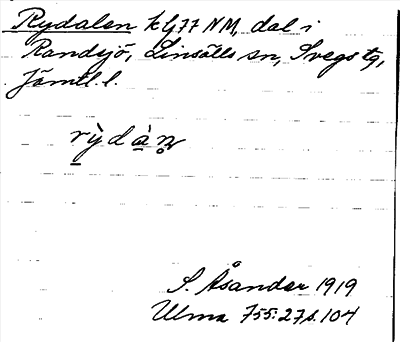 Rydalen klj77 NM, dal i
Randsjö, Linsälls sn, Svegs tg,
Jämtl. l.
rỳdàn̥
S. Åsander 1919
Ulma 755:27 s. 104